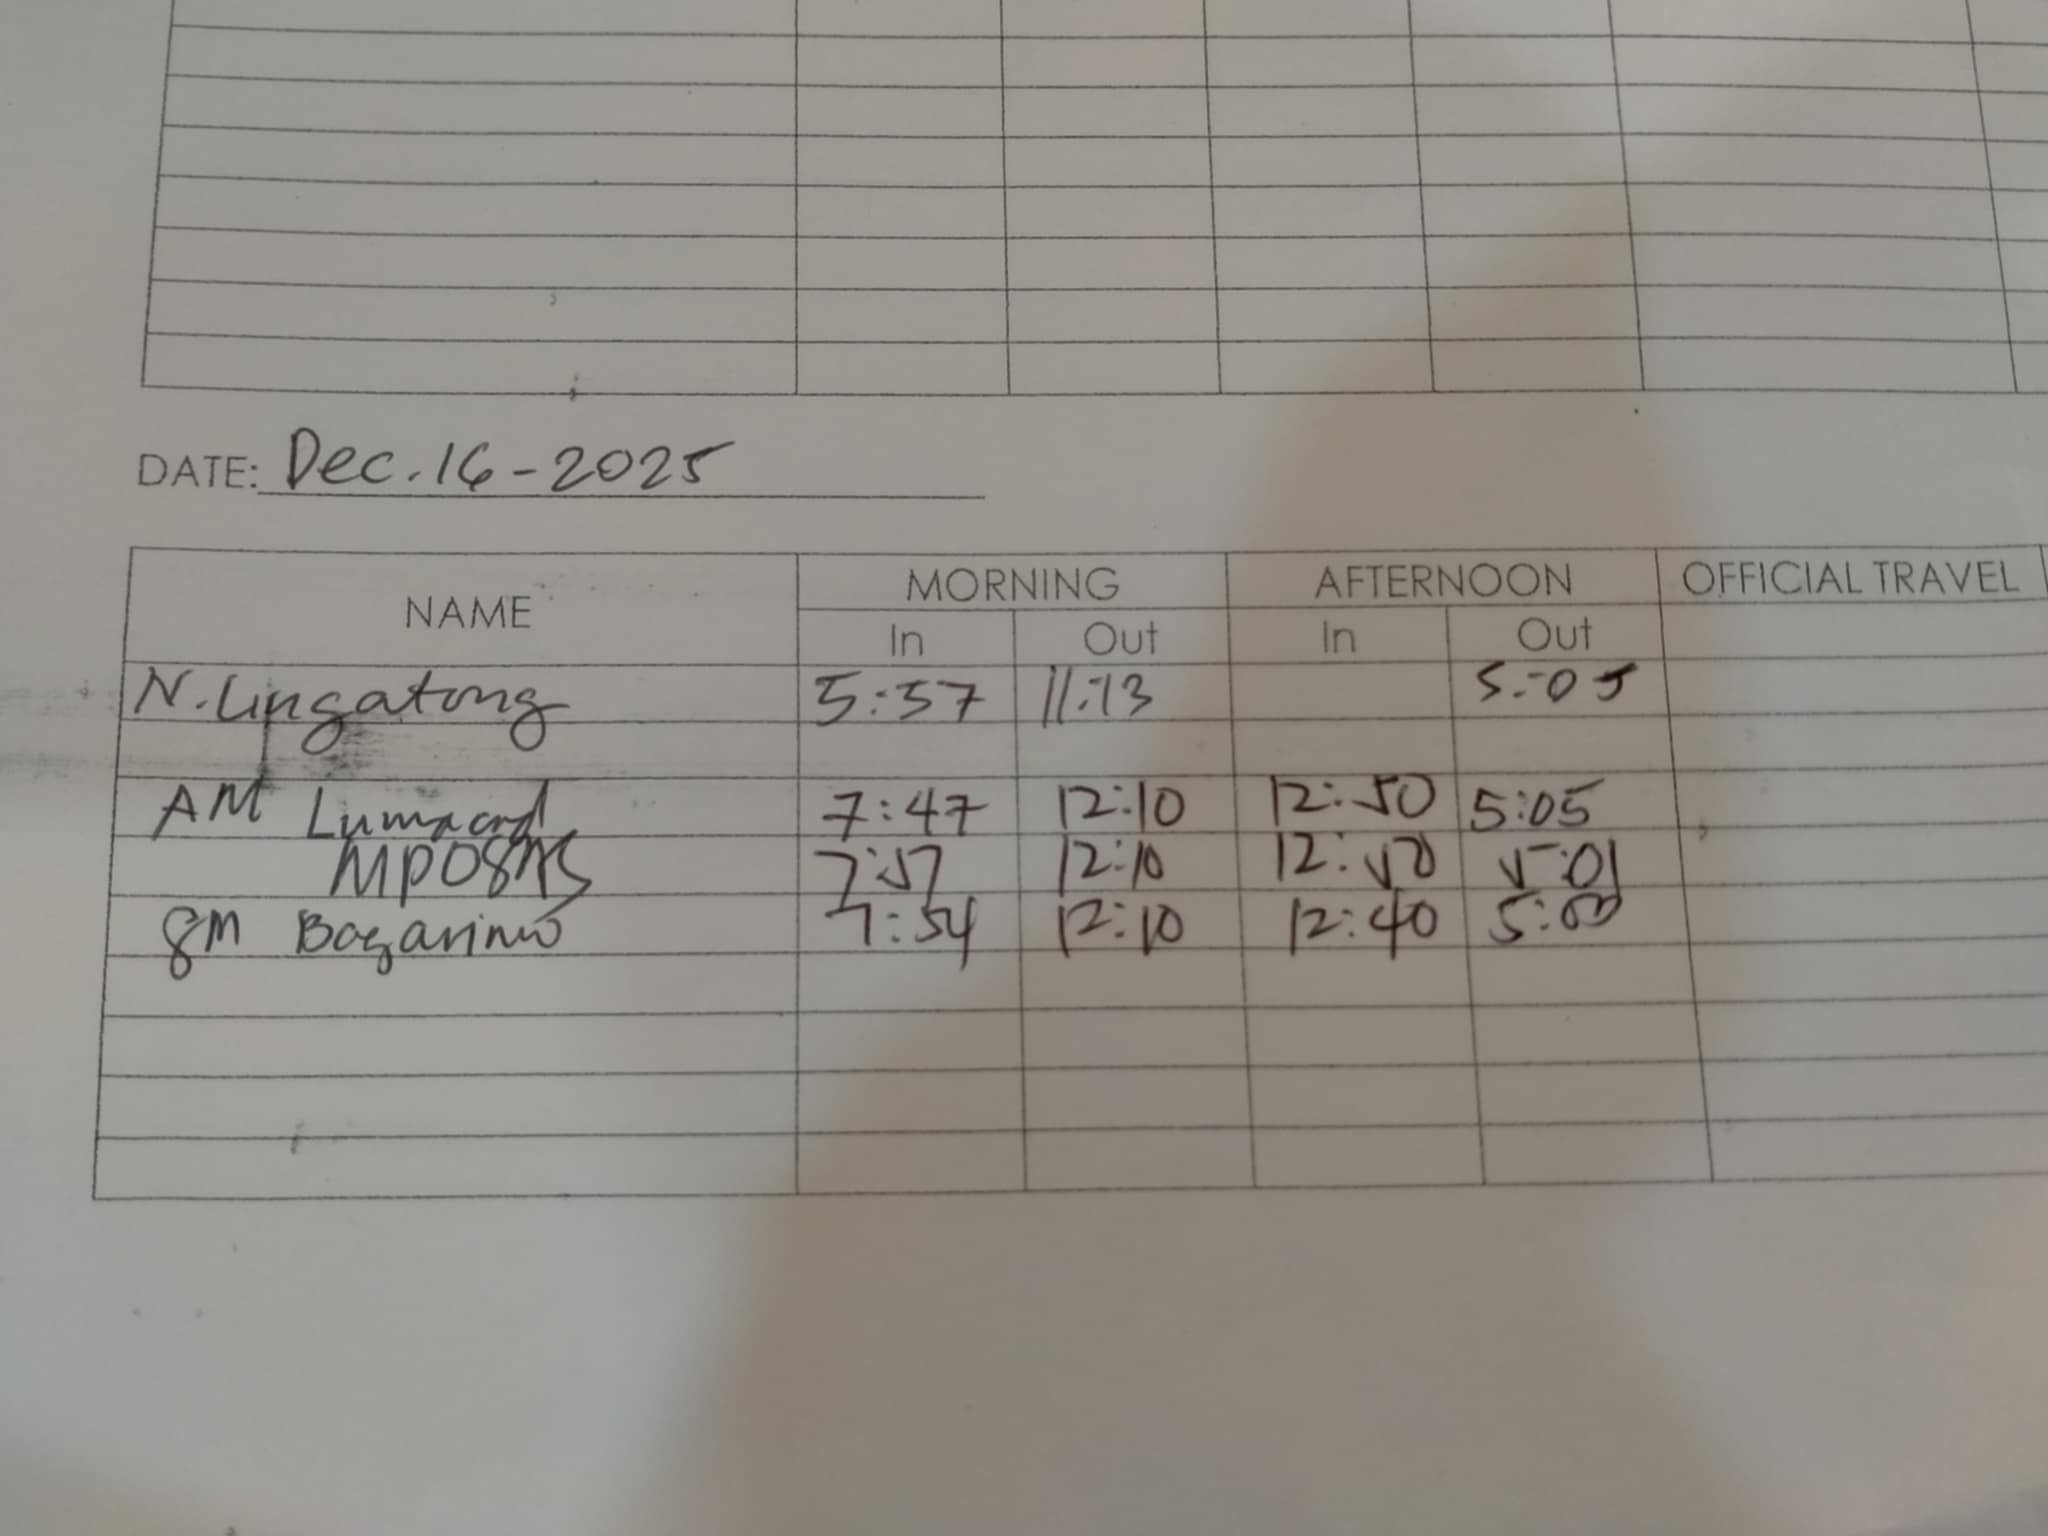 DATE: Dec. 16-2025
NAME MORNING AFTERNOON OFFICIAL TRAVEL
In Out In Out
N. Lingatong 5:57 11:13 5:05
AM 7:47 12:10 12:50 5:05
7:57 12:10 12:50 5:01
SM Bagarino 7:54 12:10 12:40